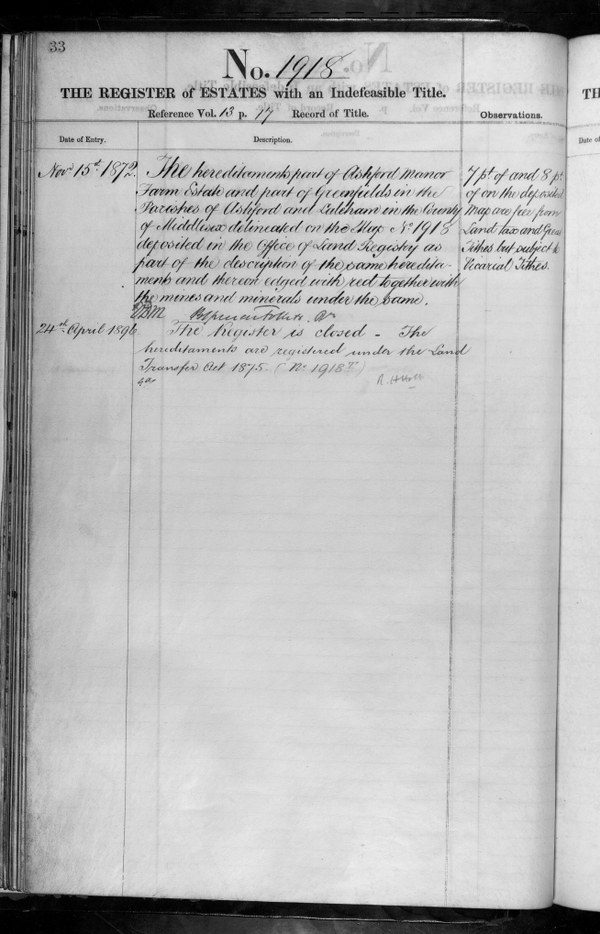 33
No. 1918
THE REGISTER of ESTATES with an Indefeasible Title.
Reference Vol. 13 p. 17 Record of Title.
Observations.
Date of Entry.
Description.
Novr 15th 1872.
The hereditaments part of Ashford Manor
Farm Estate and part of Greenfields in the
Parishes of Ashford and Laleham in the County
of Middlesex delineated on the Map No 1918
deposited in the Office of Land Registry as
part of the description of the same heredita-
ments and thereon edged with red together with
the mines and minerals under the same.
7 pt of and 8 pt
of on the deposited
Map are free from
Land Tax and Great
Tithes but subject to
Vicarial Tithes.
24th April 1896.
The Register is closed - The
hereditaments are registered under the Land
Transfer Act 1875. (No 1918
TH
Date of